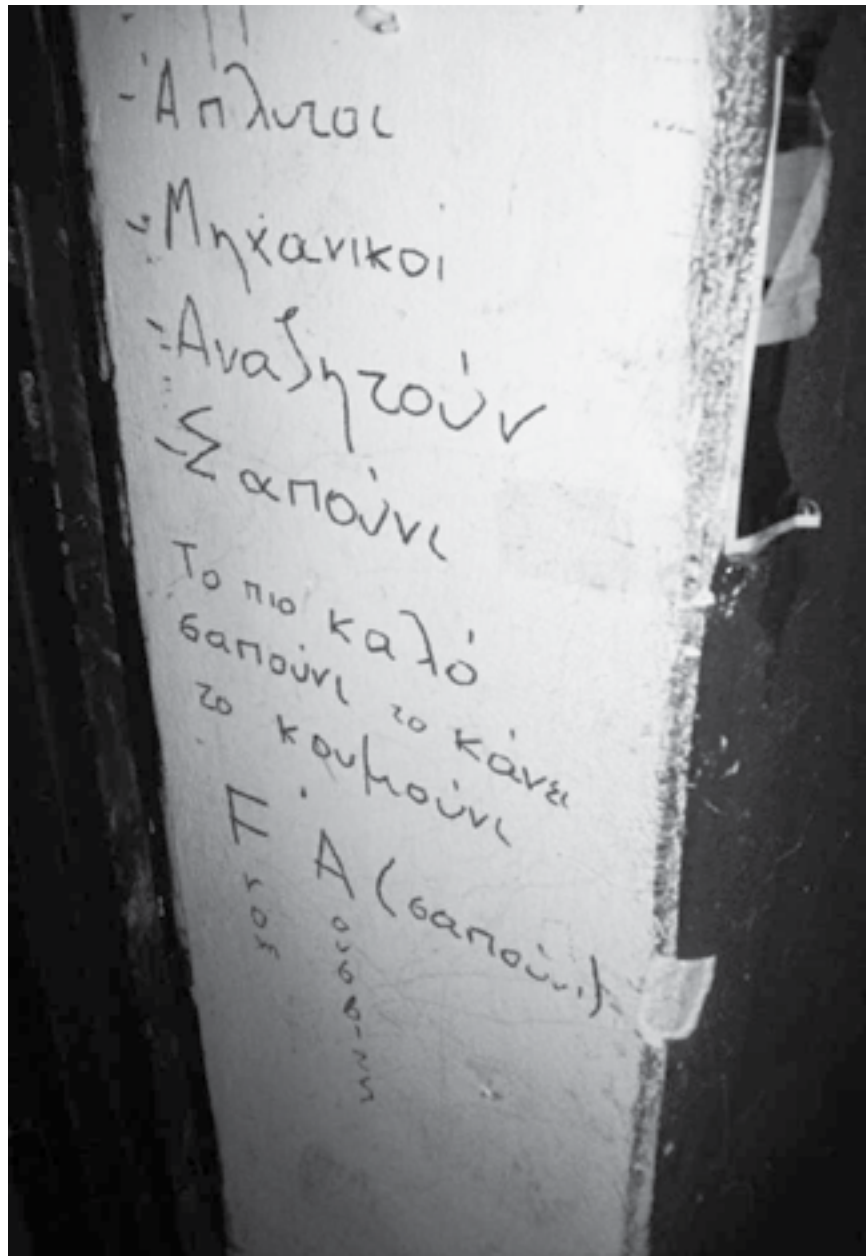 - Άπλυτοι
- Μηχανικοί
- Αναζητούν
- Σαπούνι
Το πιο καλό
σαπούνι το κάνει
το κουμούνι
F.A (σαπούνι)